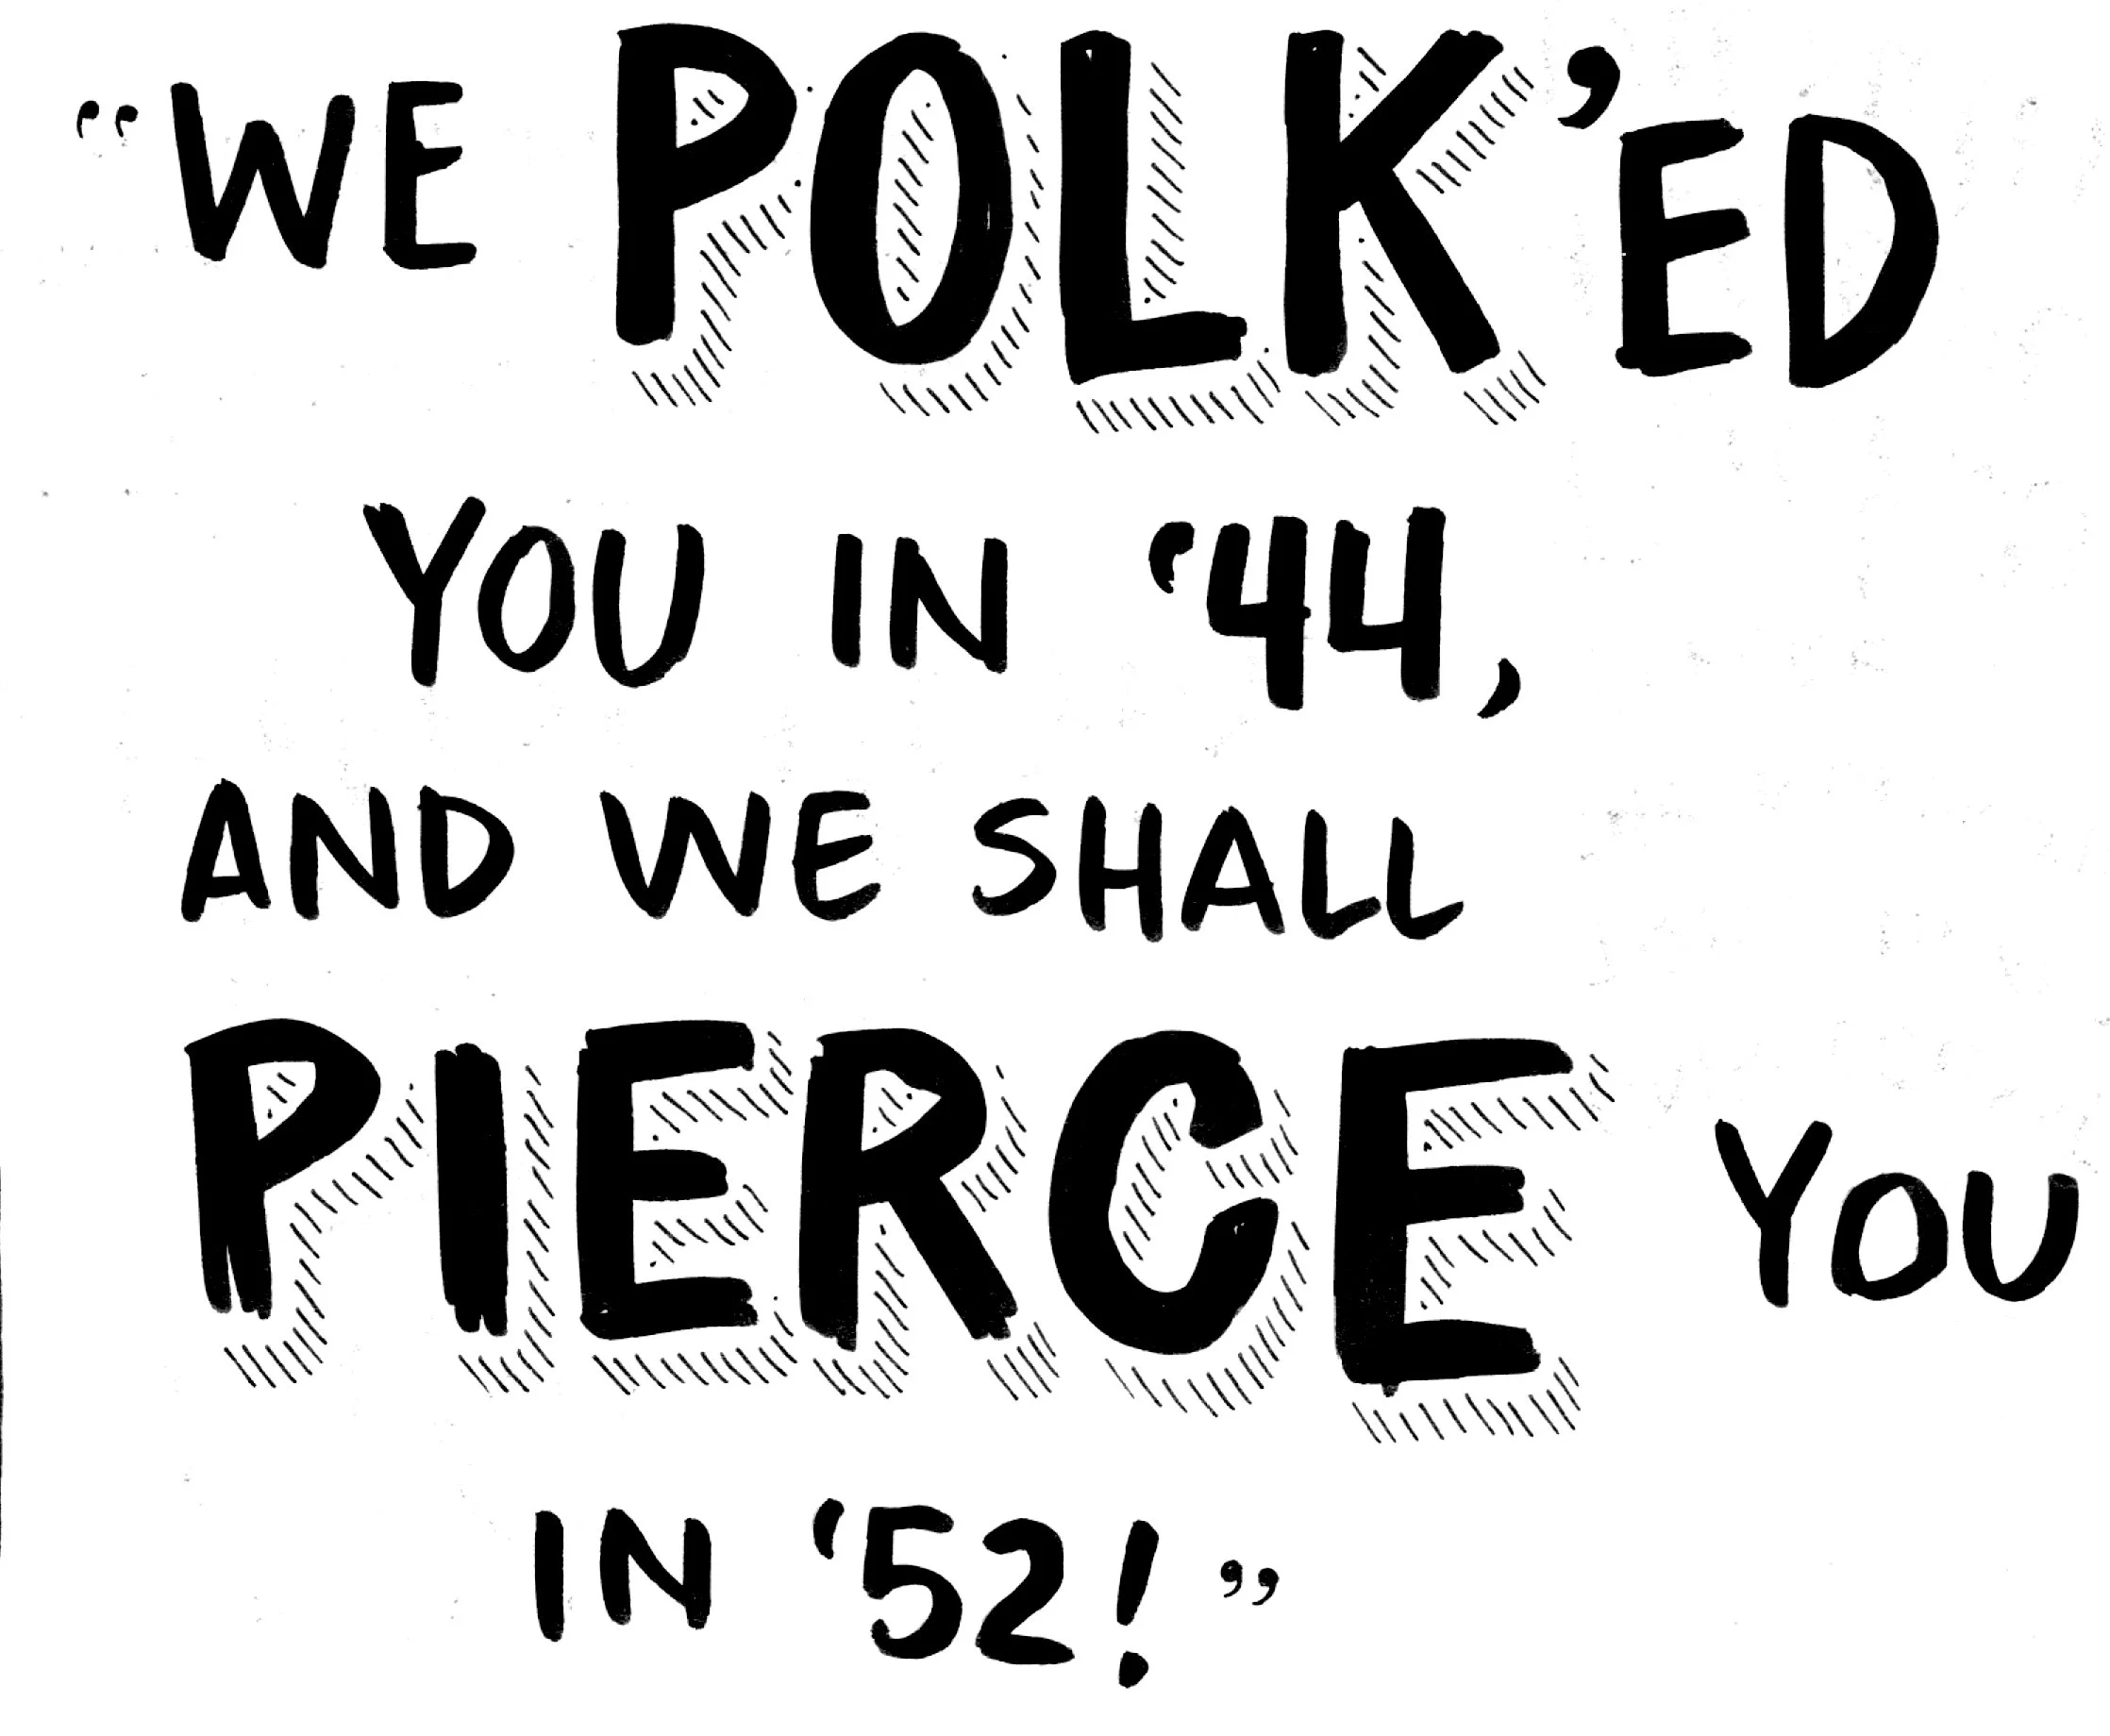 “WE POLK’ED
YOU IN ‘44,
AND WE SHALL
PIERCE YOU
IN ‘52!”